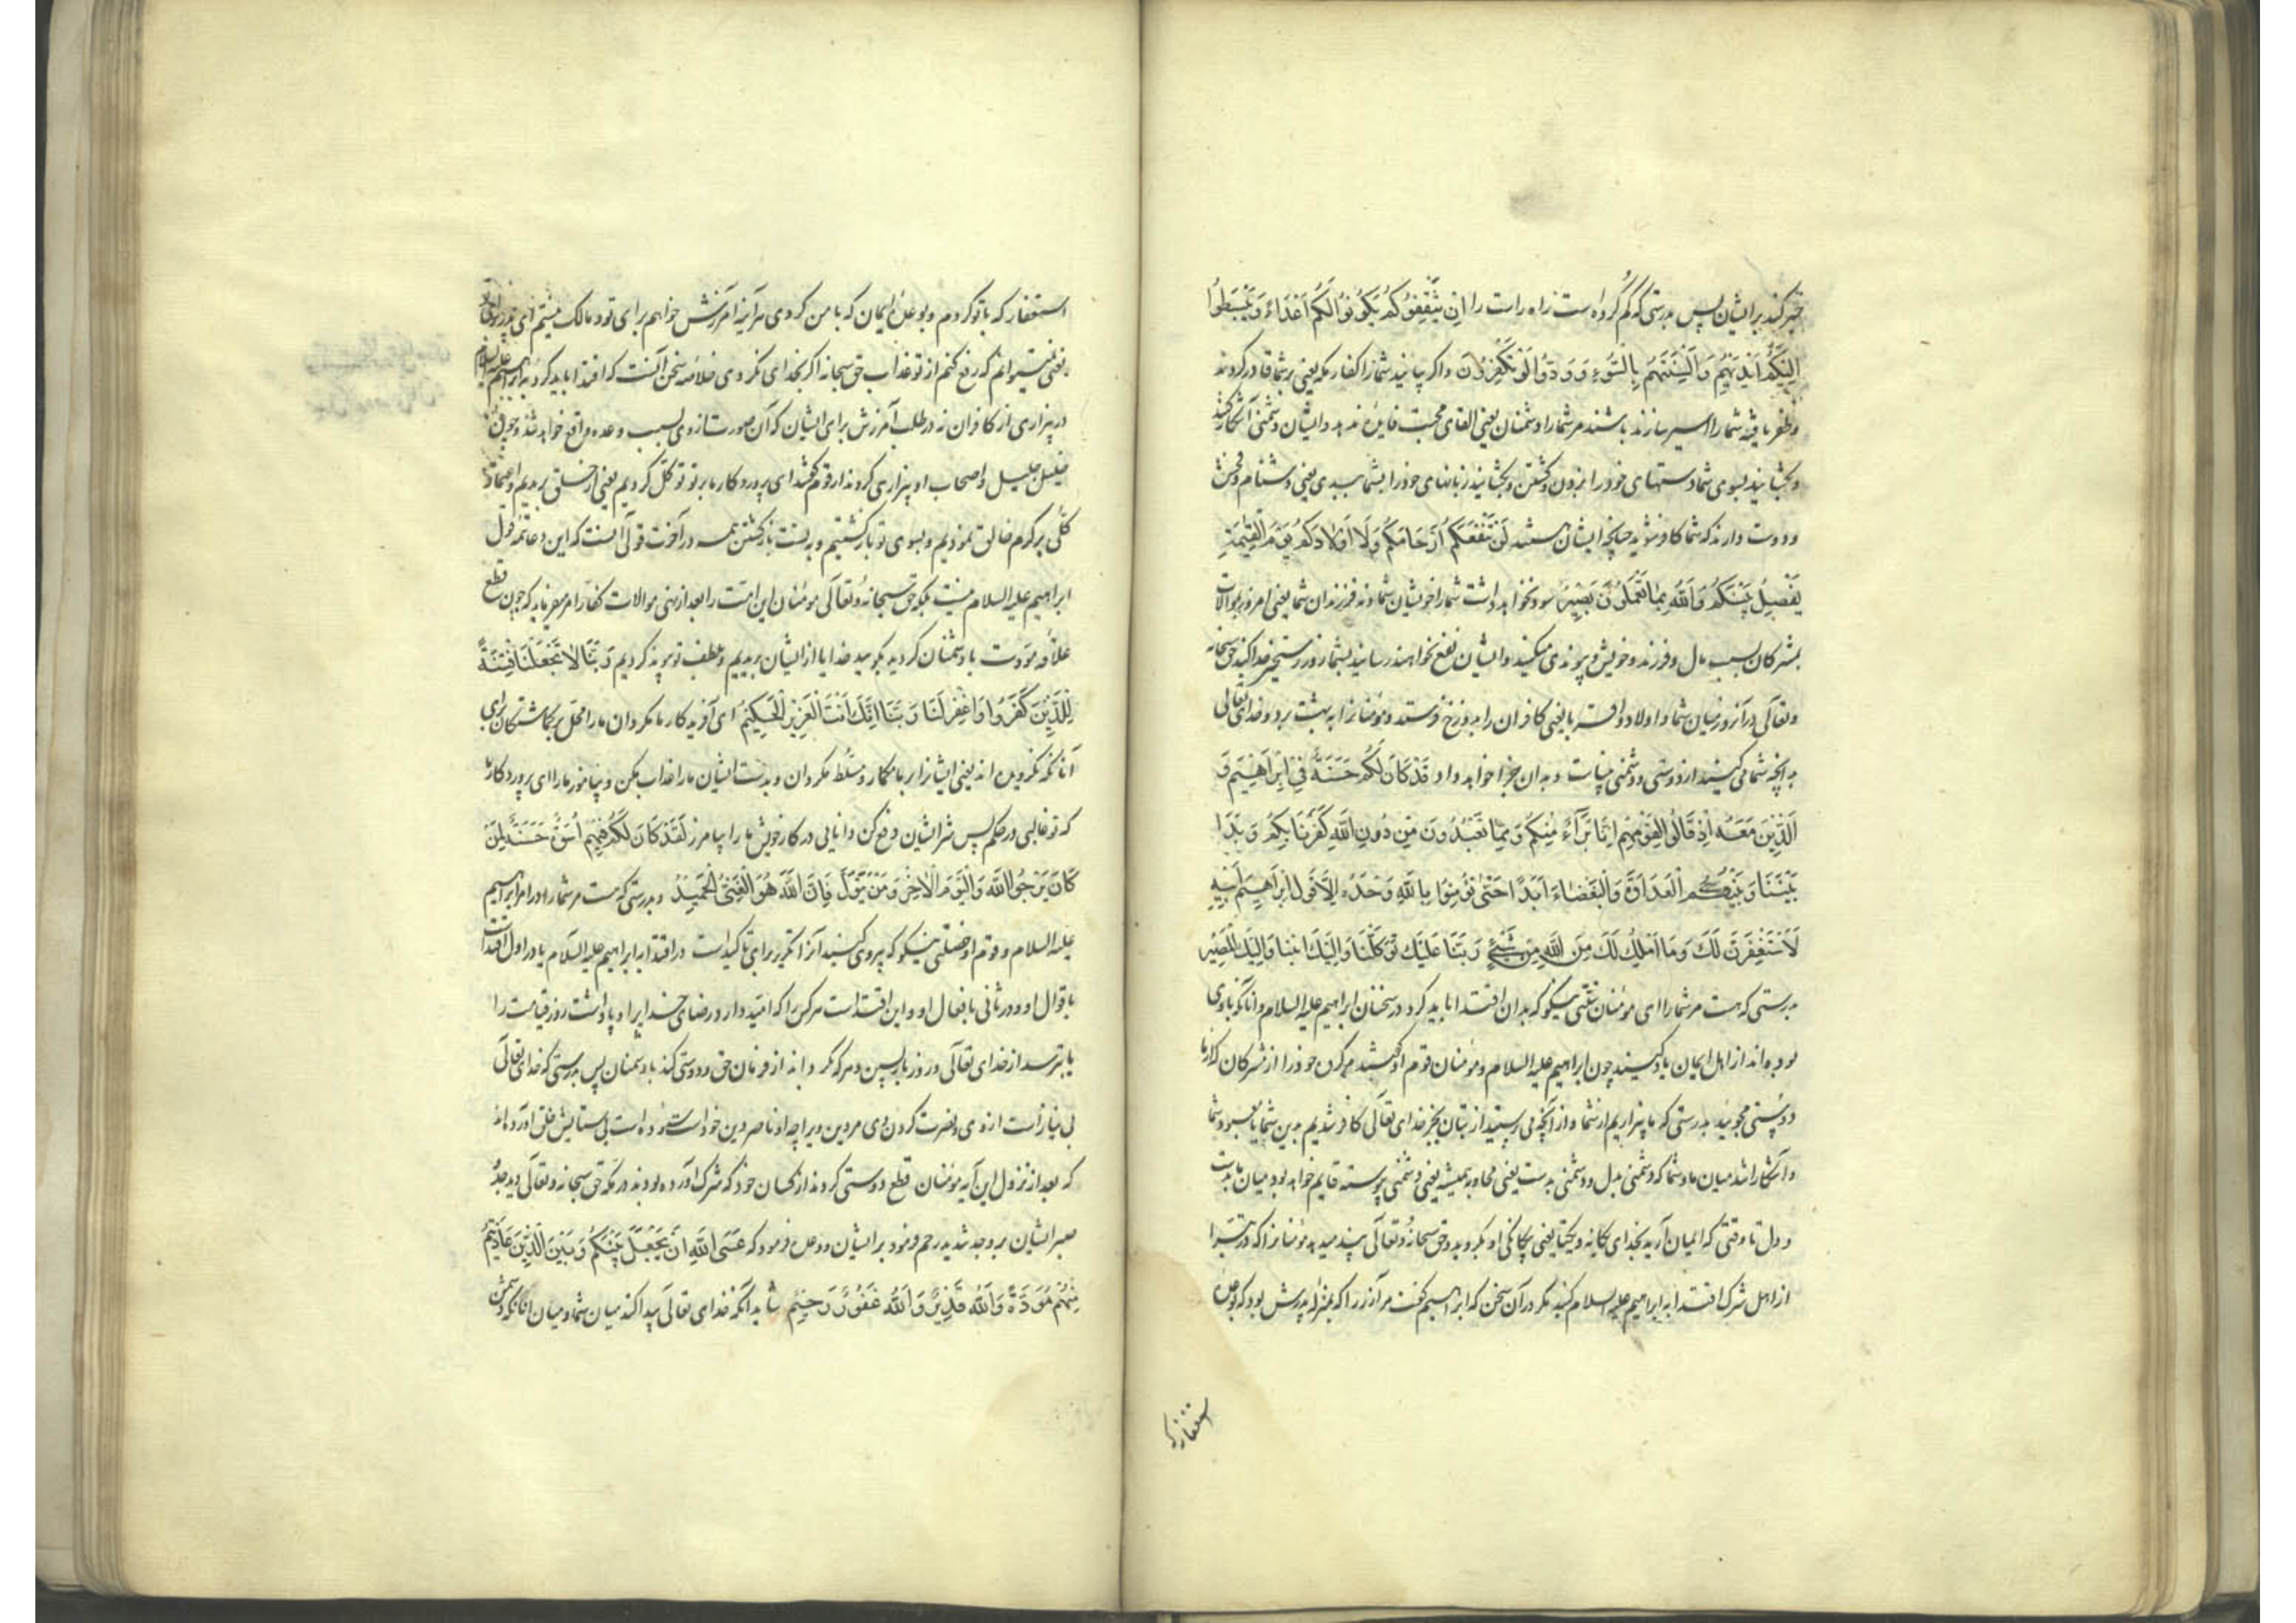 خبر کند بر ایشان پس بدرستی که گم کرده است راه راست را اِنْ یَثْقَفُوکُمْ یَکُونُوا لَکُمْ اَعْدَاءً وَیَبْسُطُوا
اِلَیْکُمْ اَیْدِیَهُمْ وَاَلْسِنَتَهُمْ بِالسُّوءِ وَوَدُّوا لَوْ تَکْفُرُونَ و اگر بیابند شما را کفار مکه یعنی بر شما قادر گردند
و ظفر یافته شما را اسیر سازند باشند مر شما را دشمنان یعنی القای محبت فایده ندهد و ایشان دشمنی آشکار کنند
و بگشایند بسوی شما دستهای خود را بزدن و کشتن و بگشایند زبانهای خود را بشما ببدی یعنی دشنام و فحش
و دوست دارند که شما کافر شوید چنانچه ایشان هستند لَنْ تَنْفَعَکُمْ اَرْحَامُکُمْ وَلَا اَوْلَادُکُمْ یَوْمَ الْقِیمَةِ
یَفْصِلُ بَیْنَکُمْ وَاللّٰهُ بِمَا تَعْمَلُونَ بَصِیرٌ سود نخواهد داشت شما را خویشان شما و نه فرزندان شما یعنی امروز بموالات
بمشرکان بسبب مال و فرزند و خویش و پیوندی میکنید و ایشان نفع نخواهند رسانید بشما روز رستخیز جدا کند حق سبحانه
و تعالی در آنروز میان شما و اولاد و اقربا یعنی کافران را بدوزخ فرستد و مؤمنانرا به بهشت برد و خدای تعالی
به آنچه شما می کنید از دوستی و دشمنی بیناست و بدان جزا خواهد داد قَدْ کَانَتْ لَکُمْ حَسَنَةٌ فِی اِبْرَاهِیمَ وَ
الَّذِینَ مَعَهُ اِذْ قَالُوا لِقَوْمِهِمْ اِنَّا بُرَآءُ مِنْکُمْ وَمِمَّا تَعْبُدُونَ مِنْ دُونِ اللّٰهِ کَفَرْنَا بِکُمْ وَبَدَا
بَیْنَنَا وَبَیْنَکُمُ الْعَدَاوَةُ وَالْبَغْضَاءُ اَبَدًا حَتّٰی تُؤْمِنُوا بِاللّٰهِ وَحْدَهُ اِلَّا قَوْلَ اِبْرَاهِیمَ لِاَبِیهِ
لَاَسْتَغْفِرَنَّ لَکَ وَمَا اَمْلِکُ لَکَ مِنَ اللّٰهِ مِنْ شَیْءٍ رَبَّنَا عَلَیْکَ تَوَکَّلْنَا وَاِلَیْکَ اَنَبْنَا وَاِلَیْکَ الْمَصِیرُ
بدرستی که هست مر شما را ای مؤمنان سنتی نیکو که بدان اقتدا باید کرد در سخنان ابراهیم علیه السلام و آنانکه با وی
بوده اند از اهل ایمان یاد کنید چون ابراهیم علیه السلام و مؤمنان قوم او گفتند مر گروه خود را از مشرکان که از ما
دوستی مجوئید بدرستی که ما بیزاریم از شما و از آنچه می پرستید از بتان بجز خدای تعالی کافر شدیم بدین شما یا بمعبود شما
و آشکارا شد میان ما و شما که دشمنی بدل و دشمنی بدست یعنی محاربه همیشه یعنی دشمنی پیوسته قایم خواهد بود میان ما بدست
و دل تا وقتی که ایمان آرید بخدای یگانه و یکتا یعنی بیگانگی او بگروید و حق سبحانه و تعالی پند میدهد مؤمنانرا که در تبرا
از اهل شرک اقتدا به ابراهیم علیه السلام کنید مگر در آن سخن که ابراهیم گفت مر آزر را که بمنزله پدرش بود که بوعده
استغفار که
استغفار که با تو کردم و بوعده ایمان که با من کردی هر آینه آمرزش خواهم برای تو و مالک نیستم ای پدر برای تو
یعنی نمیتوانم که رفع کنم از تو عذاب حق سبحانه اگر بخدای نگروی خلاصه سخن آنست که اقتدا باید کرد به ابراهیم علیه السلام
در بیزاری از کافران نه در طلب آمرزش برای ایشان که آن صورت از وی بسبب وعده واقع خواهد شد و چون
خلیل جلیل و اصحاب او بیزاری کردند از قوم گفتند ای پروردگار ما بر تو توکل کردیم یعنی از خلق بریدیم و اعتماد
کلی بر کرم خالق نمودیم و بسوی تو بازگشتیم و به تست بازگشتن همه در آخرت قولی آنست که این دعا تتمه قول
ابراهیم علیه السلام نیست بلکه حق سبحانه و تعالی مؤمنان این امت را بعد از نهی موالات کفار امر میفرماید که چون قطع
علاقه مودت با دشمنان کردید بگویید خدایا از ایشان بریدیم و بلطف تو پیوند کردیم رَبَّنَا لَا تَجْعَلْنَا فِتْنَةً
لِلَّذِینَ کَفَرُوا وَاغْفِرْ لَنَا رَبَّنَا اِنَّکَ اَنْتَ الْعَزِیزُ الْحَکِیمُ ای آفریدگار ما مگردان ما را محل برای
آنانکه نگرویده اند یعنی ایشانرا بر ما مگمار و مسلط مگردان و بدست ایشان ما را عذاب مکن و بیامرز ما را ای پروردگار ما
که تو غالبی در حکم پس شر ایشان دفع کن و دانایی در کار خویش ما را بیامرز لَقَدْ کَانَ لَکُمْ فِیهِمْ اُسْوَةٌ حَسَنَةٌ لِمَنْ
کَانَ یَرْجُو اللّٰهَ وَالْیَوْمَ الْاٰخِرَ وَمَنْ یَتَوَلَّ فَاِنَّ اللّٰهَ هُوَ الْغَنِیُّ الْحَمِیدُ و بدرستی که هست مر شما را در امر ابراهیم
علیه السلام و قوم او خصلتی نیکو که پیروی کنید آنرا تکریر برای تاکید است در اقتدا به ابراهیم علیه السلام یا در اول اقتداست
باقوال او و در ثانی بافعال او و این اقتداست هر کس را که امید دارد رضای خدا را و پاداشت روز قیامت را
یا بترسد از خدای تعالی و روز بازپسین و هر که بگرداند از فرمان حق و دوستی کند با دشمنان پس بدرستی که خدای تعالی
بی نیاز است از وی و نصرت کردن وی مر دین ویرا چه او ناصر دین خود است ستوده است بی ستایش خلق آورده اند
که بعد از نزول این آیه مؤمنان قطع دوستی کردند از کسان خود که شرک آورده بودند در مکه حق سبحانه و تعالی دید جد و
صبر ایشان بر وجد شدید رحم فرمود بر ایشان و وعده فرمود که عَسَی اللّٰهُ اَنْ یَجْعَلَ بَیْنَکُمْ وَبَیْنَ الَّذِینَ عَادَیْتُمْ
مِنْهُمْ مَوَدَّةً وَاللّٰهُ قَدِیرٌ وَاللّٰهُ غَفُورٌ رَحِیمٌ شاید آنکه خدای تعالی پیدا کند میان شما و میان آنانکه دشمن